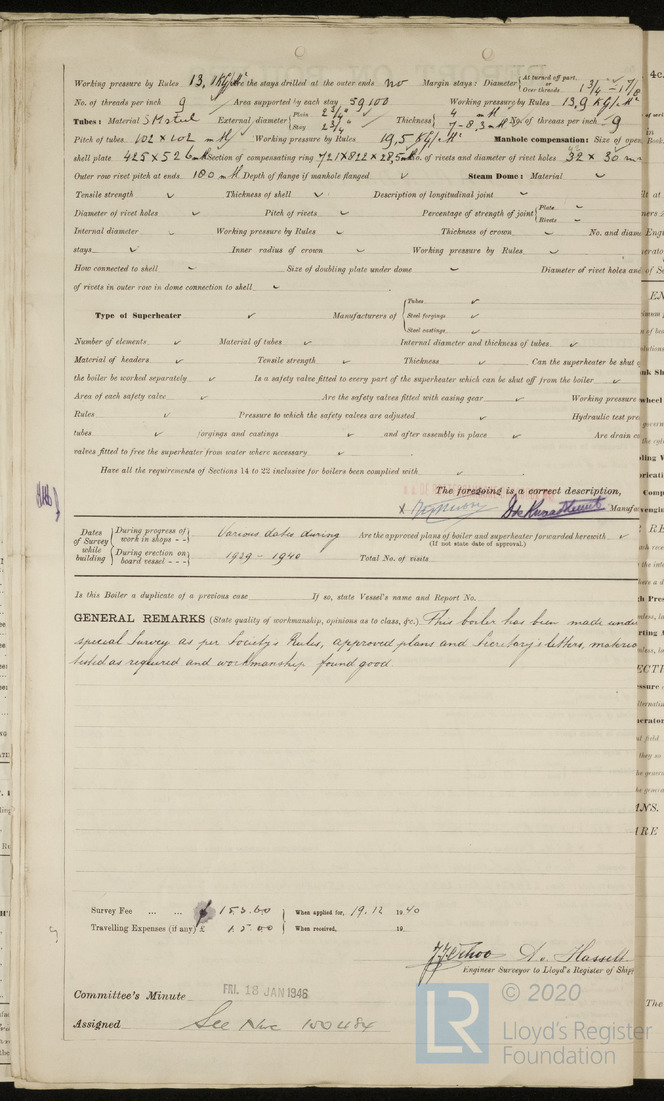 Working pressure by Rules 13,1 Kg/cM² Are the stays drilled at the outer ends no Margin stays: Diameter { At turned off part, or Over threads 1 3/4" - 1 7/8
No. of threads per inch 9 Area supported by each stay 59100 Working pressure by Rules 13,9 Kg/cM²
Tubes: Material S M Steel External diameter { Plain 2 3/4" Stay 2 3/4" Thickness { 4 m/m 7-8,3 m/m No. of threads per inch 9
Pitch of tubes 102 x 102 m/m Working pressure by Rules 19,5 Kg/cM² Manhole compensation: Size of open
shell plate 425 x 526 m/m Section of compensating ring 721x822 x 28,5 m/m No. of rivets and diameter of rivet holes 32 x 30 m
Outer row rivet pitch at ends 180 m/m Depth of flange if manhole flanged Steam Dome: Material
Tensile strength Thickness of shell Description of longitudinal joint
Diameter of rivet holes Pitch of rivets Percentage of strength of joint { Plate Rivets
Internal diameter Working pressure by Rules Thickness of crown No. and diame
stays Inner radius of crown Working pressure by Rules
How connected to shell Size of doubling plate under dome Diameter of rivet holes and
of rivets in outer row in dome connection to shell
Type of Superheater Manufacturers of { Tubes Steel forgings Steel castings
Number of elements Material of tubes Internal diameter and thickness of tubes
Material of headers Tensile strength Thickness Can the superheater be shut o
the boiler be worked separately Is a safety valve fitted to every part of the superheater which can be shut off from the boiler
Area of each safety valve Are the safety valves fitted with easing gear Working pressure
Rules Pressure to which the safety valves are adjusted Hydraulic test pre
tubes forgings and castings and after assembly in place Are drain co
valves fitted to free the superheater from water where necessary
Have all the requirements of Sections 14 to 22 inclusive for boilers been complied with
The foregoing is a correct description,
Manufa
Dates of Survey while building { During progress of work in shops - - } Various dates during Are the approved plans of boiler and superheater forwarded herewith
(If not state date of approval.)
{ During erection on board vessel - - - } 1939 - 1940 Total No. of visits
Is this Boiler a duplicate of a previous case If so, state Vessel's name and Report No.
GENERAL REMARKS (State quality of workmanship, opinions as to class, &c.) This boiler has been made unde
special Survey as per Society's Rules, approved plans and Secretary's letters, materia
tested as required and workmanship found good
Survey Fee ... ... £ 153.00 } When applied for, 19.12 1940
Travelling Expenses (if any) £ 15.00 } When received, 19
Engineer Surveyor to Lloyd's Register of Ship
Committee's Minute FRI. 18 JAN 1946
Assigned See
LR © 2020
Lloyd's Register
Foundation